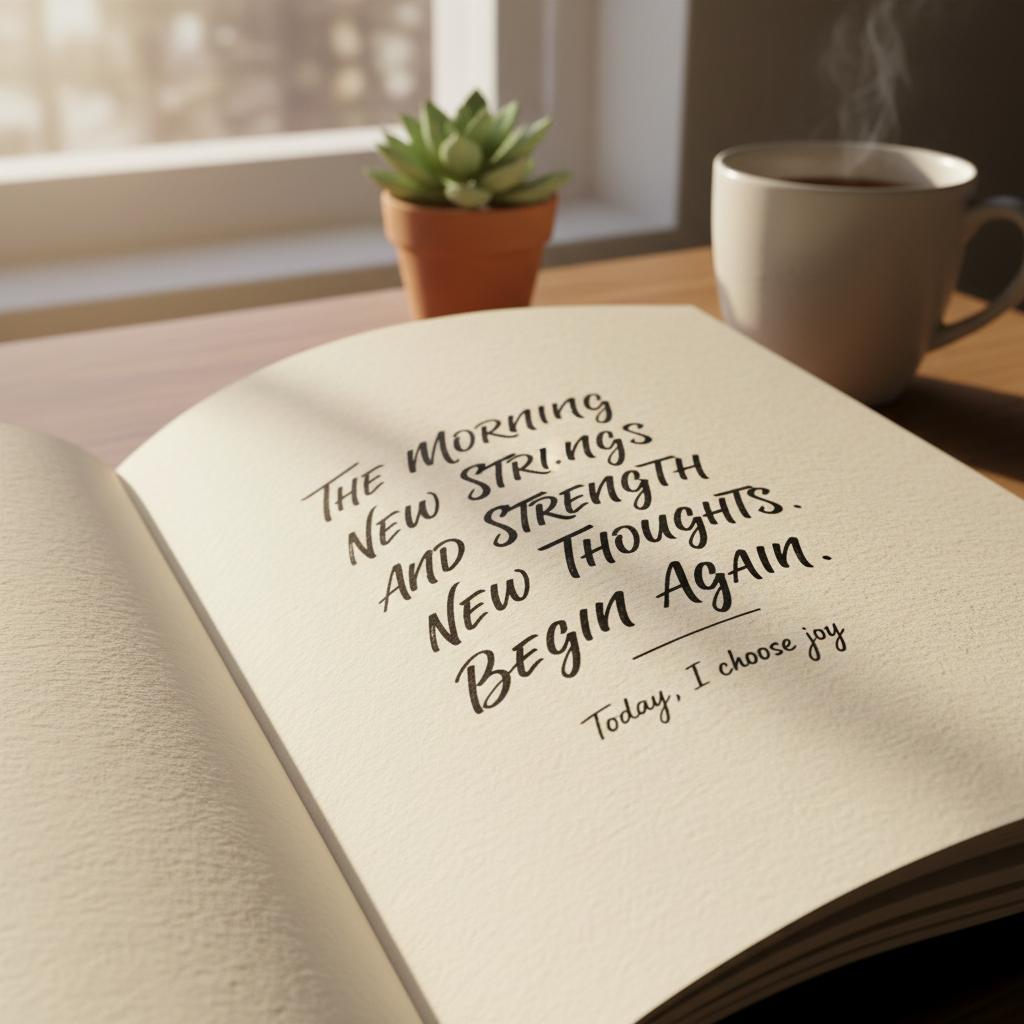 THE MORNING
NEW STRI.NGS
AND STRENGTH
NEW THOUGHTS.
BEGIN AGAIN.
Today, I choose joy